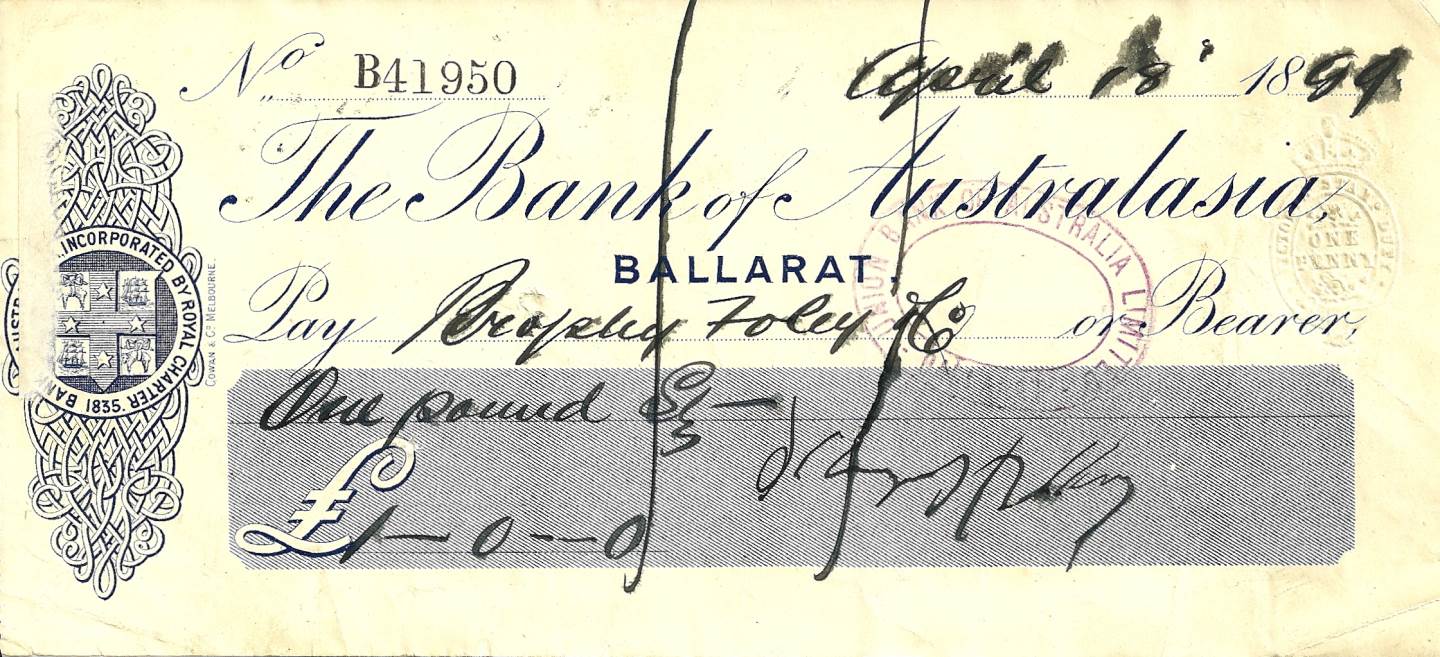 No B41950
April 18 1899
The Bank of Australasia,
BALLARAT.
Pay Brophy Foley & Co or Bearer,
One pound
£1-0-0
INCORPORATED BY ROYAL CHARTER. 1835.
COWAN & Co MELBOURNE.
UNION BANK OF AUSTRALIA LIMITED
ONE PENNY